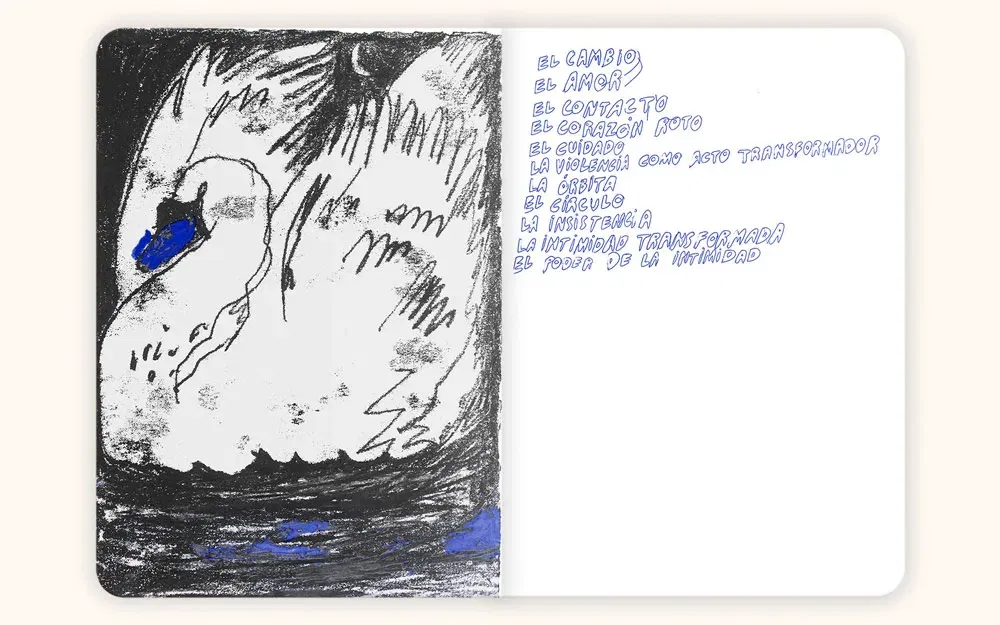 EL CAMBIO
EL AMOR
EL CONTACTO
EL CORAZÓN ROTO
EL CUIDADO
LA VIOLENCIA COMO ACTO TRANSFORMADOR
LA ÓRBITA
EL CÍRCULO
LA INSISTENCIA
LA INTIMIDAD TRANSFORMADA
EL PODER DE LA INTIMIDAD